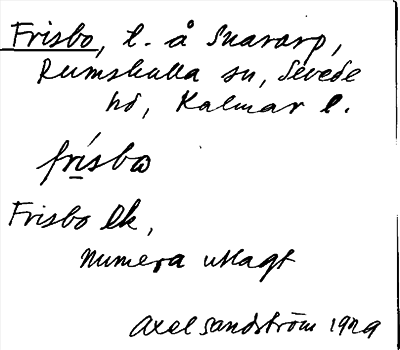 Frisbo, l. å Snararp,
Rumskulla sn, Sevede
hd, Kalmar l.
frísbω
Frisbo lk,
numera utlagt
Axel Sandström 1929